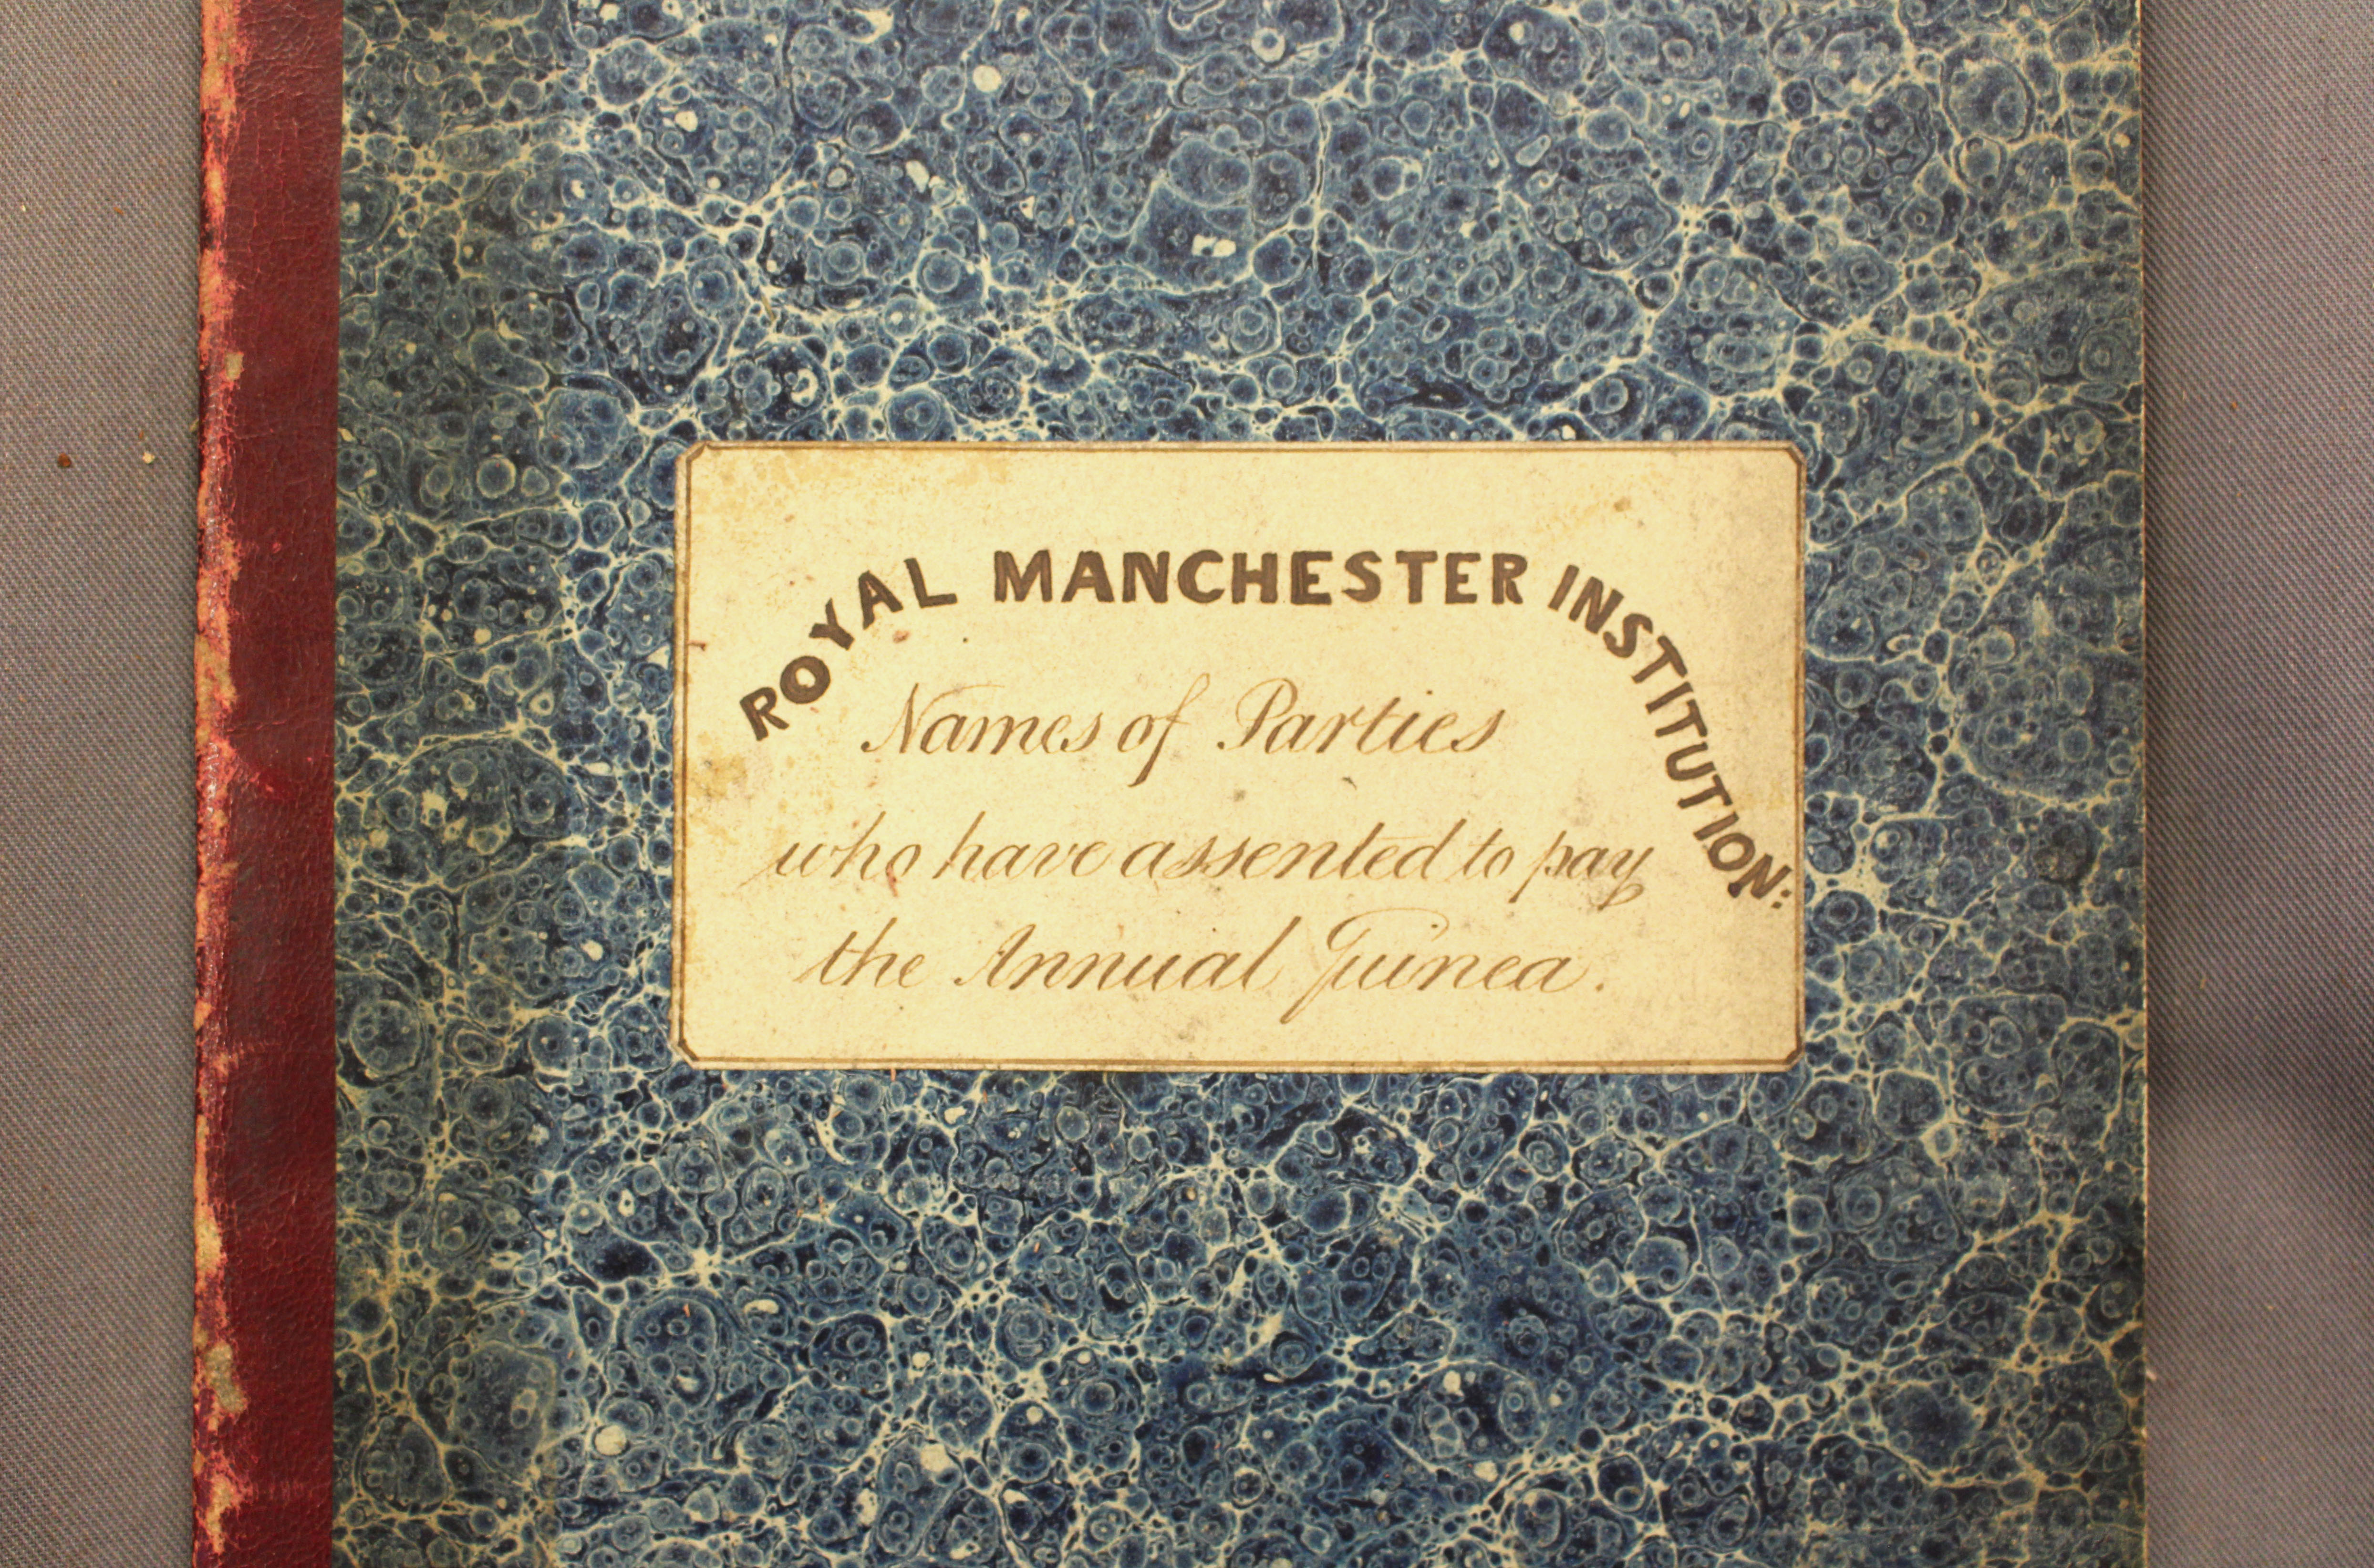 ROYAL MANCHESTER INSTITUTION:
Names of Parties
who have assented to pay
the Annual Guinea.